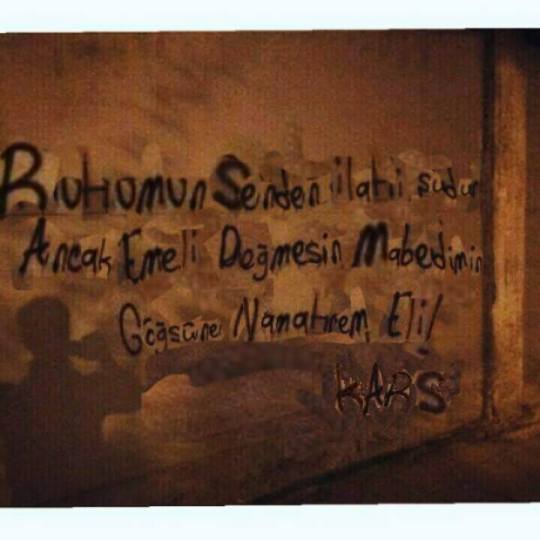 Ruhumun Senden ilahi şudur
Ancak Emeli Değmesin Mabedimin
Göğsüne Namahrem Eli!
KARS